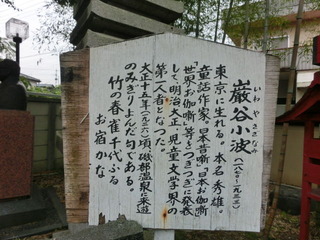 巌谷小波(一八七〇~一九三三)
いわやさざなみ
東京に生れる。本名秀雄。
童話作家、日本昔噺、日本お伽噺
世界お伽噺、等をつぎつぎに発表
して、明治大正、児童文学界の
第一人者となった。
大正十五年(一九二六)頃、磯部温泉に来遊
のみぎりよんだ句である。
竹の春雀千代ふる
お宿かな